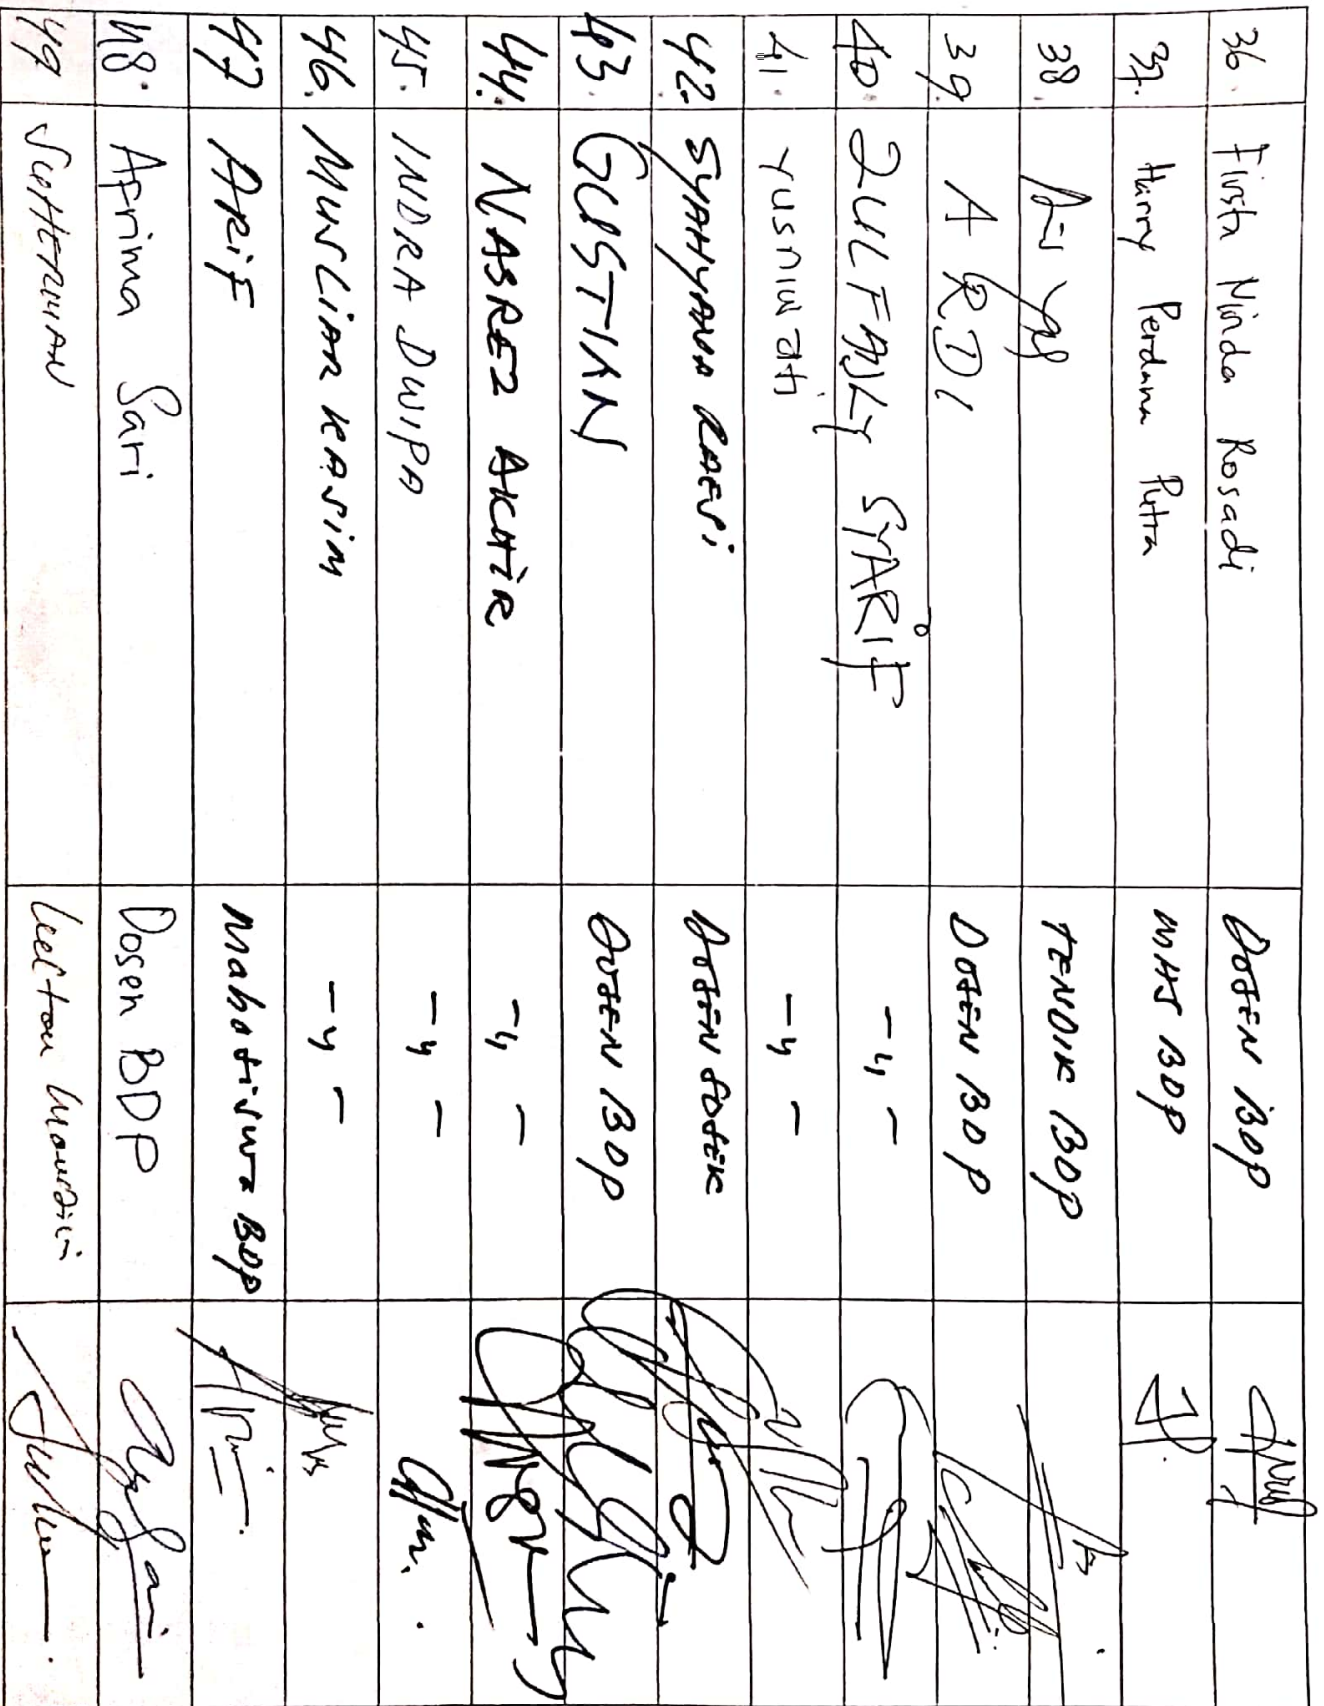 36. Firsta Ninda Rosadi DOSEN BDP
37. Harry Perdana Putra MHS BDP
38. TENDIK BDP
39. ARDI DOSEN BDP
40. ZULFADLY SYARIF -〃-
41. Yusniwati -〃-
42. SYAHYANA RAESI DOSEN SOSEK
43. GUSTIAN DOSEN BDP
44. NASREZ AKHIR -〃-
45. INDRA DWIPA -〃-
46. MUSLIAR KASIM -〃-
47 ARIF Mahasiswa BDP
48. Afrima Sari Dosen BDP
49 SUHERMAN